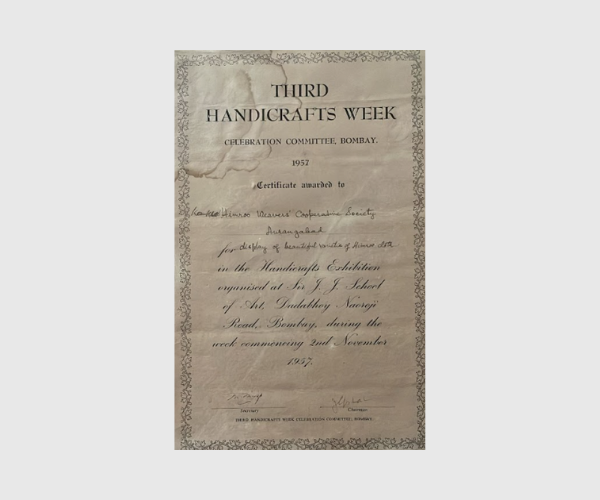 THIRD
HANDICRAFTS WEEK
CELEBRATION COMMITTEE, BOMBAY.
1957
Certificate awarded to
Himroo Weavers' Cooperative Society
Aurangabad
for display of beautiful varieties of Himroo
in the Handicrafts Exhibition
organised at Sir J. J. School
of Art, Dadabhoy Naoroji
Road, Bombay, during the
week commencing 2nd November
1957.
Secretary
Chairman
THIRD HANDICRAFTS WEEK CELEBRATION COMMITTEE, BOMBAY.